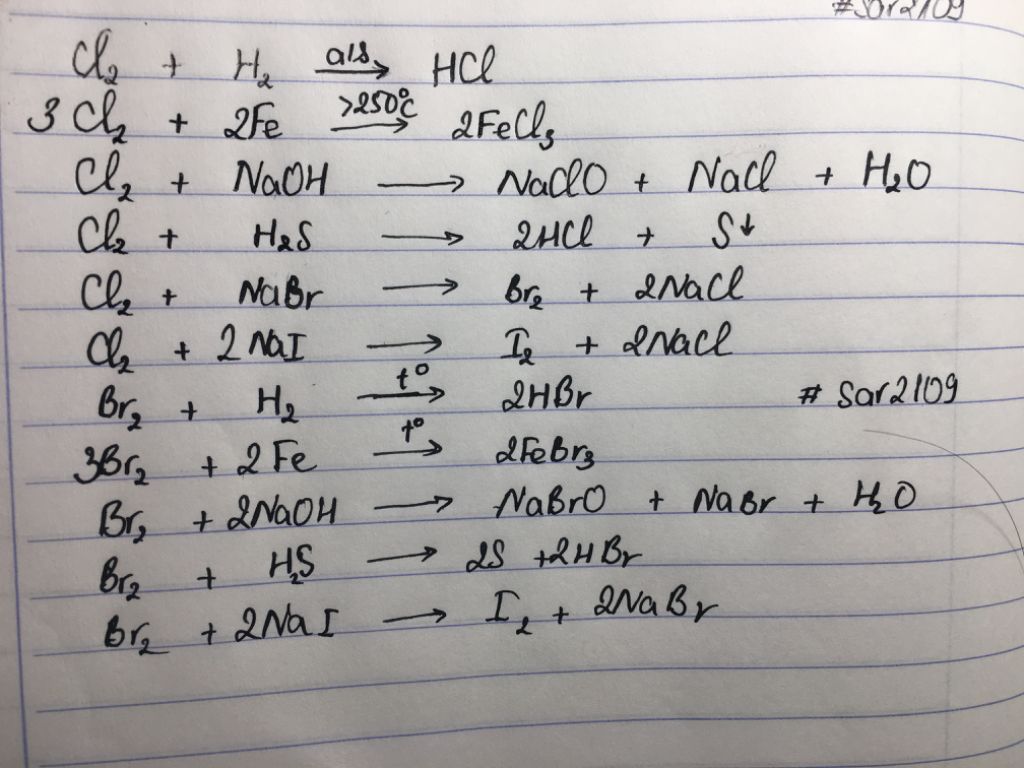 #Sar2109
Cl₂ + H₂ —a/s→ HCl
3Cl₂ + 2Fe —>250°C→ 2FeCl₃
Cl₂ + NaOH → NaClO + NaCl + H₂O
Cl₂ + H₂S → 2HCl + S↓
Cl₂ + NaBr → Br₂ + 2NaCl
Cl₂ + 2NaI → I₂ + 2NaCl
Br₂ + H₂ —t°→ 2HBr # Sar2109
3Br₂ + 2Fe —t°→ 2FeBr₃
Br₂ + 2NaOH → NaBrO + NaBr + H₂O
Br₂ + H₂S → 2S + 2HBr
Br₂ + 2NaI → I₂ + 2NaBr